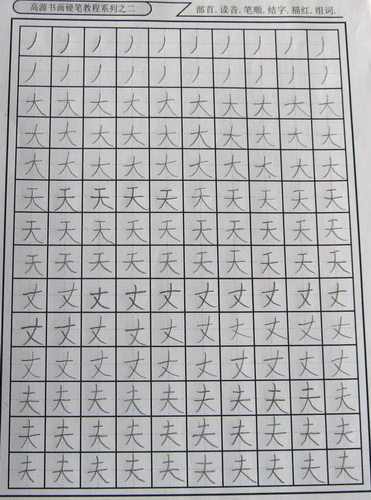 高源书画硬笔教程系列之二 部首.读音.笔顺.结字.描红.组词.
丿 丿 丿 丿 丿 丿 丿 丿 丿 丿
丿 丿 丿 丿 丿 丿 丿 丿 丿 丿
大 大 大 大 大 大 大 大 大 大
大 大 大 大 大 大 大 大 大 大
大 大 大 大 大 大 大 大 大 大
天 天 天 天 天 天 天 天 天 天
天 天 天 天 天 天 天 天 天 天
天 天 天 天 天 天 天 天 天 天
丈 丈 丈 丈 丈 丈 丈 丈 丈 丈
丈 丈 丈 丈 丈 丈 丈 丈 丈 丈
丈 丈 丈 丈 丈 丈 丈 丈 丈 丈
夫 夫 夫 夫 夫 夫 夫 夫 夫 夫
夫 夫 夫 夫 夫 夫 夫 夫 夫 夫
夫 夫 夫 夫 夫 夫 夫 夫 夫 夫